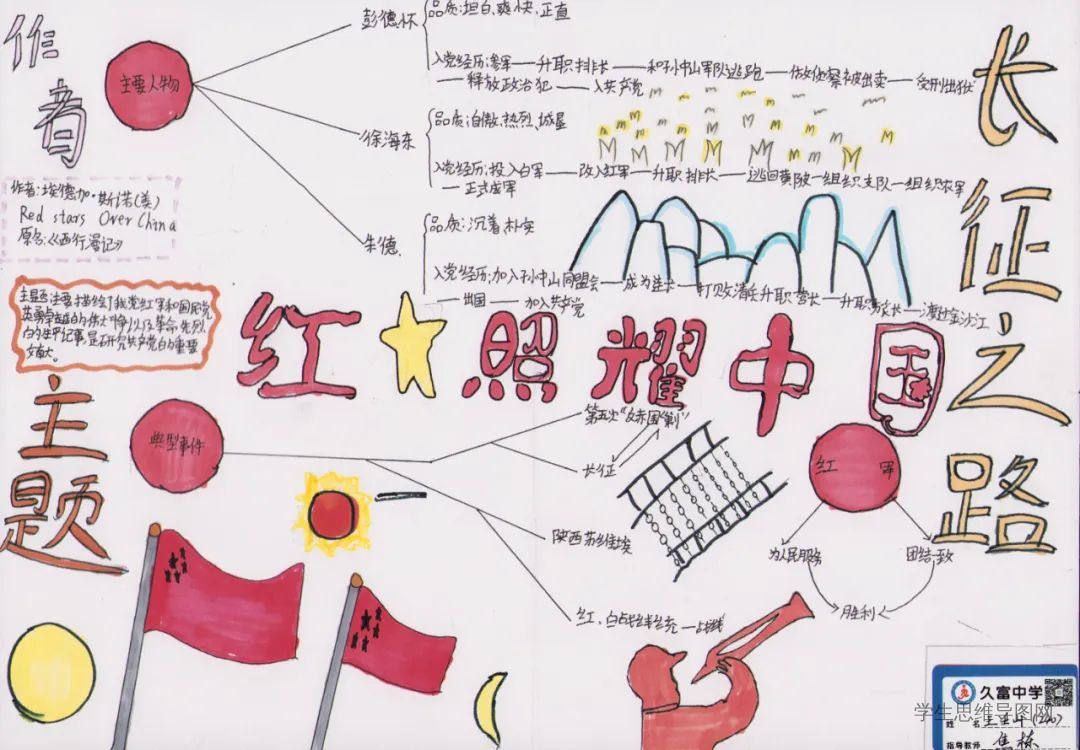 作者
作者:埃德加·斯诺(美)
Red stars Over China
原名:《西行漫记》
主要人物
彭德怀
品质:坦白,爽快,正直
入党经历:参军—升职排长—和孙中山军队逃跑—侦察被出卖—受刑出狱
—释放政治犯—入共产党
徐海东
品质:自傲,热烈,
入党经历:投入白军—改入红军—升职排长—逃回黄陂—组织支队—组织农军
—正式成军
朱德
品质:沉着,朴实
入党经历:加入孙中山同盟会—成为连长—打败 升职营长—升职 长—渡过金沙江
—出国—加入共产党
长征之路
主题
主题:主要描绘了我党红军和国民党
红★照耀中国
典型事件
第五次“反赤国 剿”
长征
陕西苏维埃
红、白战线统一战线
红军
为人民服务
团结一致
胜利
久富中学
学生思维导图网
姓名
指导教师